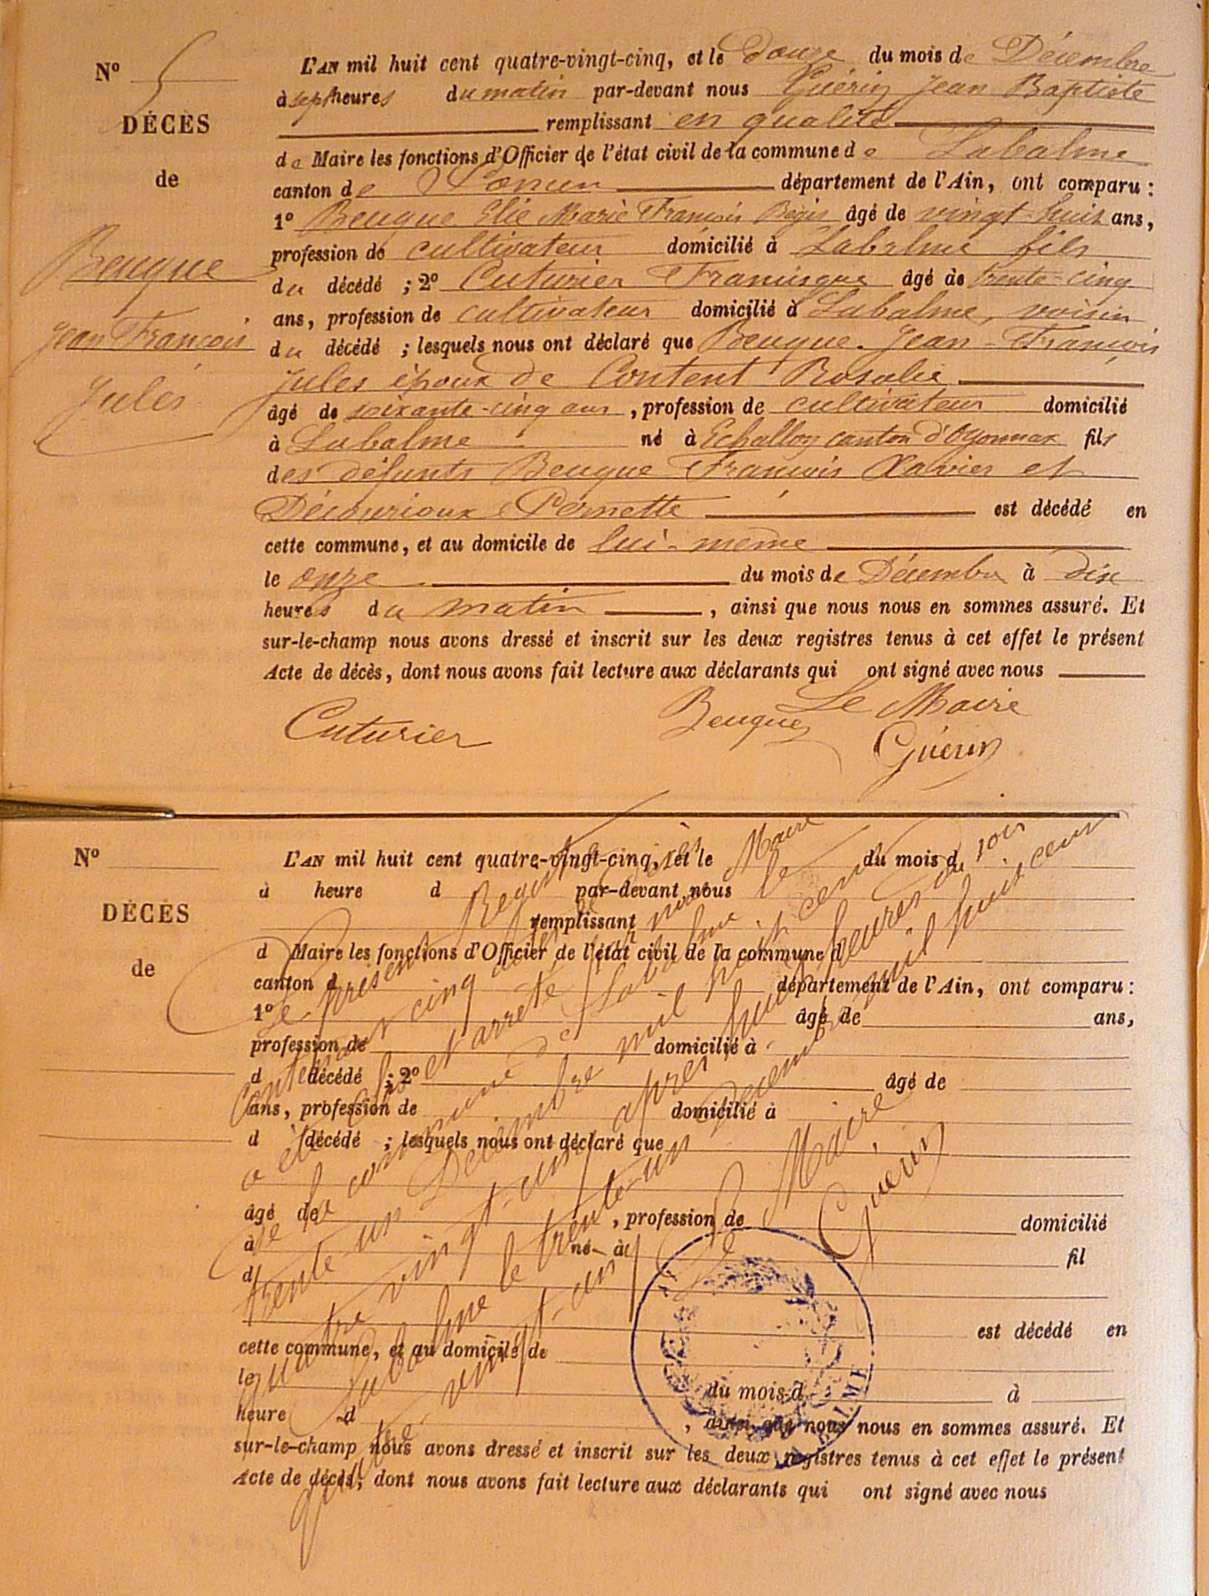 N° 5
DÉCÈS
de
Beuque
Jean François
Jules
L'AN mil huit cent quatre-vingt-cinq, et le Douze du mois de Décembre
à sept heures du matin par-devant nous Guérin Jean Baptiste
remplissant en qualité
de Maire les fonctions d'Officier de l'état civil de la commune de Labalme
canton de Poncin département de l'Ain, ont comparu :
1° Beuque Elie Marie François Régis âgé de vingt-huit ans,
profession de cultivateur domicilié à Labalme fils
du décédé ; 2° Cuturier Francisque âgé de trente-cinq
ans, profession de cultivateur domicilié à Labalme, voisin
du décédé ; lesquels nous ont déclaré que Beuque Jean-François
Jules époux de Content Rosalie
âgé de soixante-cinq ans, profession de cultivateur domicilié
à Labalme né à Echallon canton d'Oyonnax fils
des défunts Beuque François Xavier et
Pernette est décédé en
cette commune, et au domicile de lui-même
le onze du mois de Décembre à dix
heures du matin, ainsi que nous nous en sommes assuré. Et
sur-le-champ nous avons dressé et inscrit sur les deux registres tenus à cet effet le présent
Acte de décès, dont nous avons fait lecture aux déclarants qui ont signé avec nous
Cuturier Beuque Le Maire
Guérin
N°
DÉCÈS
de
L'AN mil huit cent quatre-vingt-cinq, et le du mois d
à heure d par-devant nous
remplissant
d Maire les fonctions d'Officier de l'état civil de la commune d
canton d département de l'Ain, ont comparu :
1° âgé de ans,
profession de domicilié à
d décédé ; 2° âgé de
ans, profession de domicilié à
d décédé ; lesquels nous ont déclaré que
âgé de , profession de domicilié
à né à fil
d
est décédé en
cette commune, et au domicile de
le du mois d à
heure d , ainsi que nous nous en sommes assuré. Et
sur-le-champ nous avons dressé et inscrit sur les deux registres tenus à cet effet le présent
Acte de décès, dont nous avons fait lecture aux déclarants qui ont signé avec nous
Le présent Registre
contenant cinq actes de Décès
a été clos et arrêté par nous Maire
de la commune de Labalme le
trente-un Décembre mil huit cent
quatre vingt-cinq après huit heures du soir
Labalme le trente-un Décembre mil huit cent
quatre vingt-cinq
Le Maire
Guérin